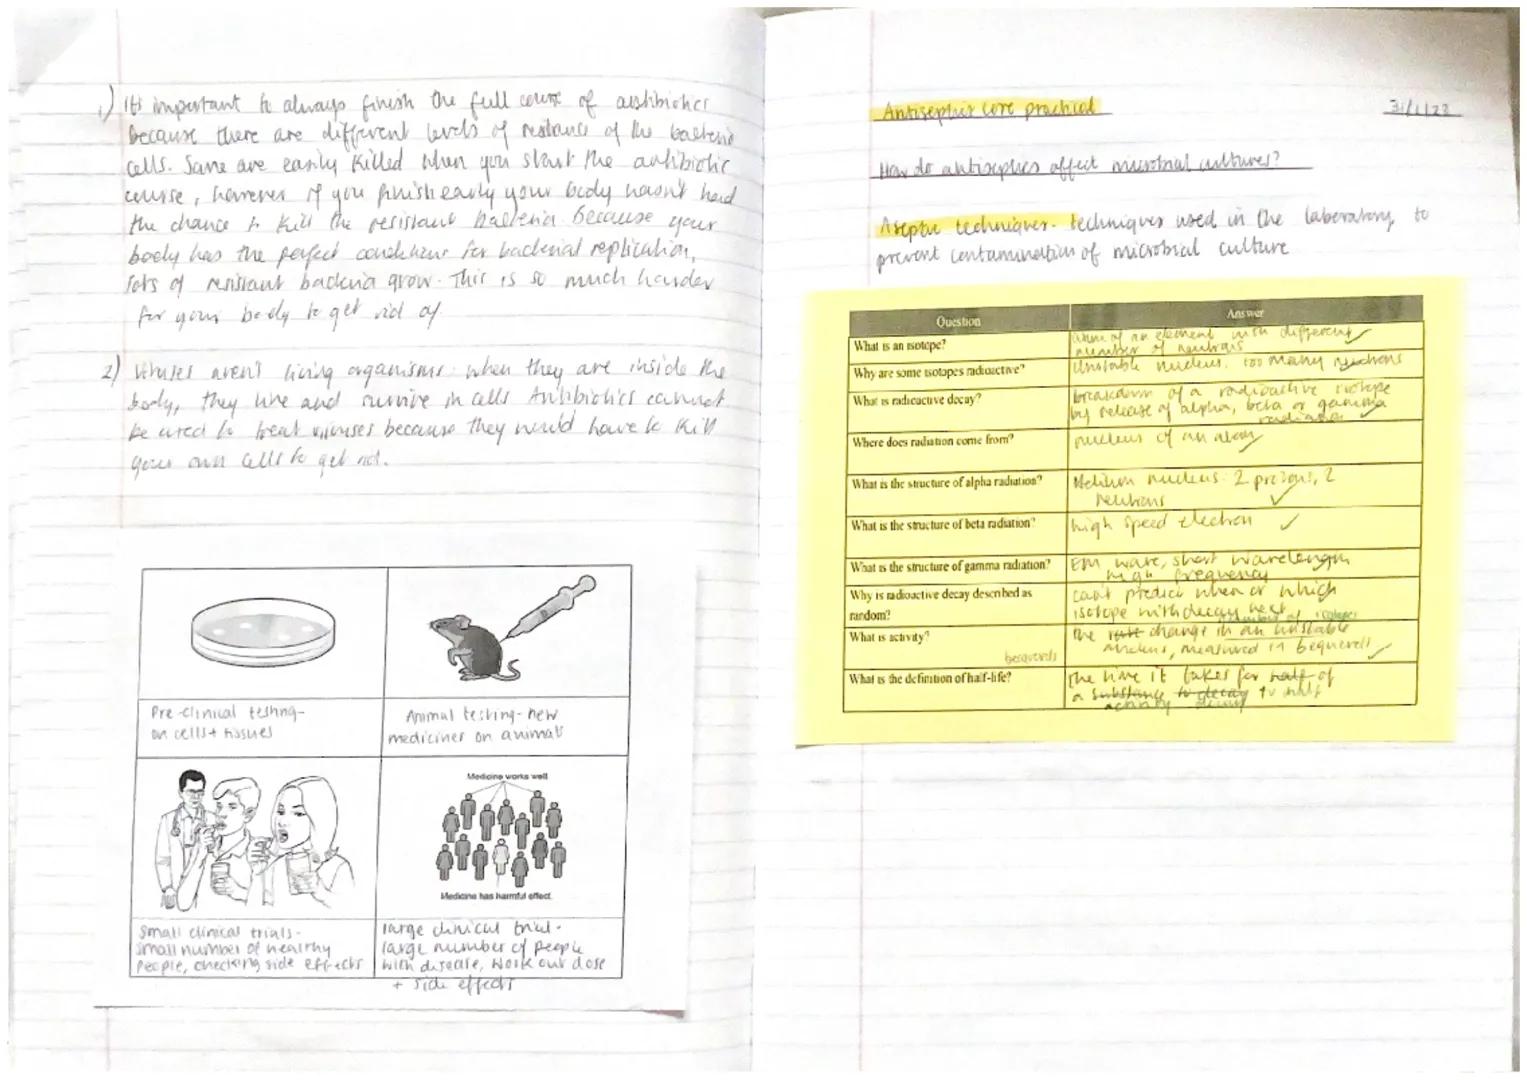 1) It's important to always finish the full course of antibiotics
because there are different levels of resistance of the bacteria
cells. Some are easily killed when you start the antibiotic
course, however if you finish early your body hasn't had
the chance to kill the resistant bacteria. Because your
body has the perfect conditions for bacterial replication,
lots of resistant bacteria grow. This is so much harder
for your body to get rid of.
2) Viruses aren't living organisms. When they are inside the
body, they live and survive in cells. Antibiotics cannot
be used to treat viruses because they would have to kill
your own cells to get rid.
Pre-clinical testing-
on cells + tissues
Animal testing- new
medicines on animals
Medicine works well
Medicine has harmful effect
Small clinical trials-
small number of healthy
people, checking side effects
large clinical trial-
large number of people
with disease, work out dose
+ side effects
Antiseptics core practical
31/1/23
How do antiseptics affect microbial cultures?
Aseptic techniques- techniques used in the laboratory to
prevent contamination of microbial culture
Question
Answer
What is an isotope?
of an element with different
number of neutrons
Why are some isotopes radioactive?
Unstable nucleus, too many neutrons
What is radioactive decay?
breakdown of a radioactive isotope
by release of alpha, beta or gamma
radiation
Where does radiation come from?
nucleus of an atom
What is the structure of alpha radiation?
Helium nucleus: 2 protons, 2
neutrons
What is the structure of beta radiation?
high speed electron
What is the structure of gamma radiation?
EM wave, short wavelength
high frequency
Why is radioactive decay described as
random?
can't predict when or which
isotope will decay next
What is activity?
becquerels
number of isotopes
the rate change in an unstable
nucleus, measured in bequerels
What is the definition of half-life?
The time it takes for half of
a substance to decay to half
activity decay